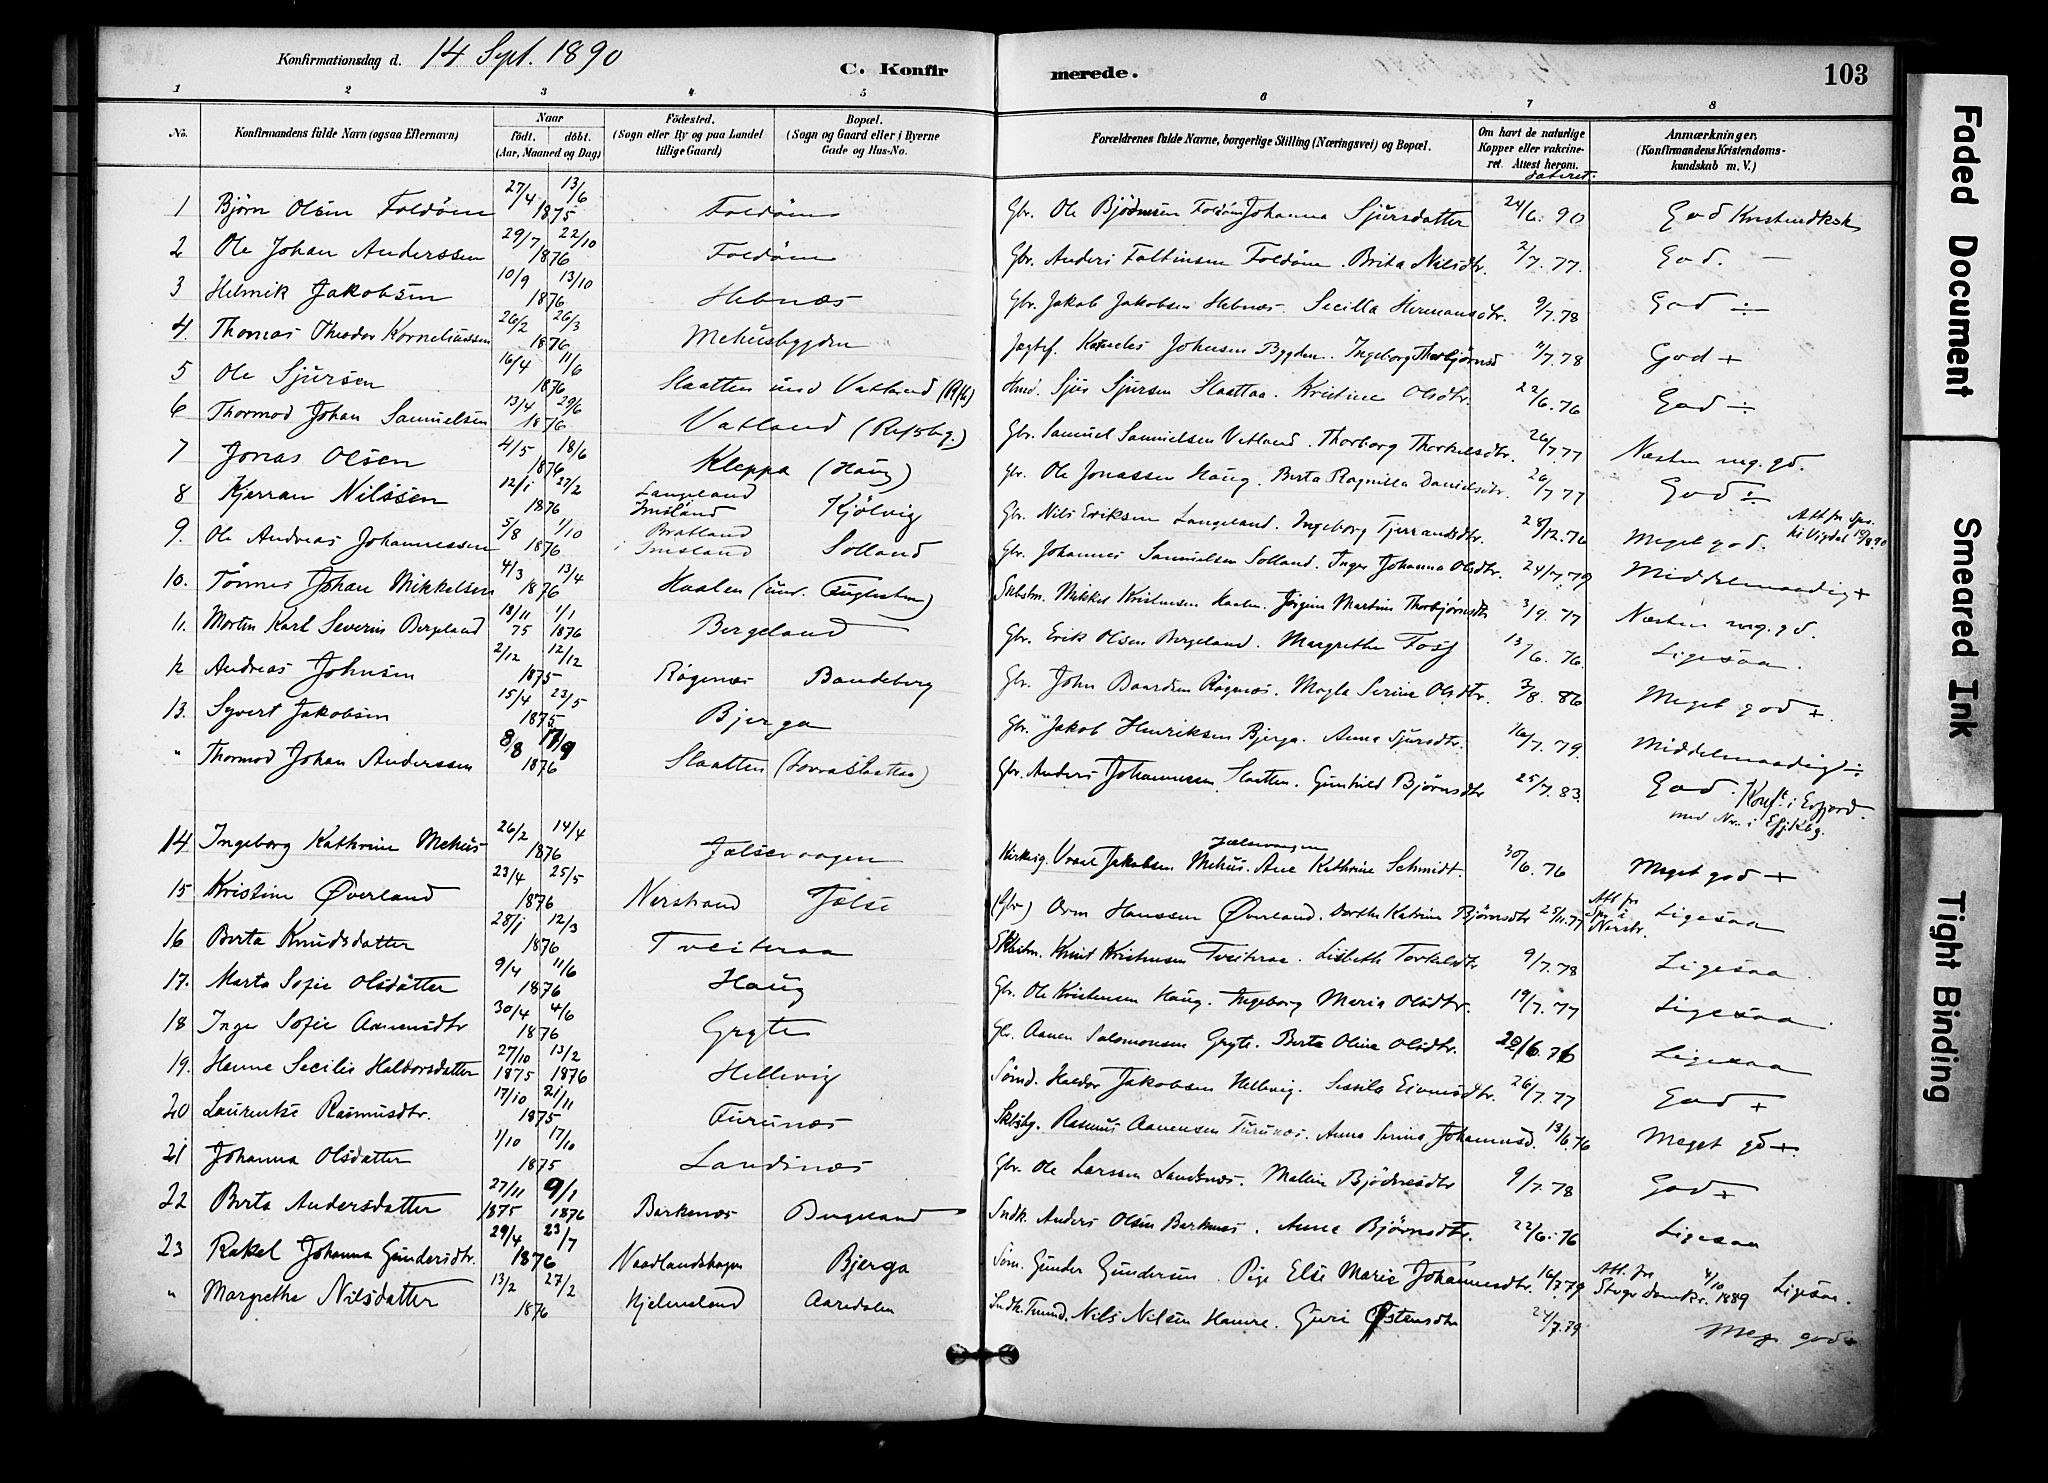 Konfirmationsdag d. 14 Sept. 1890
C. Konfirmerede.
103
1 2 3 4 5 6 7 8
No. Konfirmandens fulde Navn (ogsaa Efternavn) Naar født. døbt. (Aar, Maaned og Dag) Fødested. (Sogn eller By og paa Landet tillige Gaard) Bopæl. (Sogn og Gaard eller i Byerne Gade og Hus-No. Forældrenes fulde Navne, borgerlige Stilling (Næringsvei) og Bopæl. Om havt de naturlige Kopper eller vakcineret. Attest herom. dateret. Anmærkninger. (Konfirmandens Kristendomskundskab m. V.)
1 Bjørn Olsen Foldøen 27/4 13/6 1875 Foldøen Gbr. Ole Bjødnsen Foldøen Johanna Sjursdatter 24/6. 90 God Kristendksk
2 Ole Johan Anderssen 29/7 22/10 1876 Foldøen Gbr. Anders Faltinsen Foldøen. Brita Nilsdtr. 2/7. 77. God. —
3 Helmik Jakobsen 10/9 13/10 1876 Hebnæs Gbr. Jakob Jakobsen Hebnæs. Secilla Hermansdtr. 9/7. 78 God ÷
4. Thomas Theodor Korneliussen 26/2 26/3 1876 Mehusbygden Johnsen Bygden. Ingeborg Thorbjørnsd 11/7. 78 God +
5 Ole Sjursen 16/4 11/6 1876 Slaatten und Vatland Hmd. Sjur Sjursen Slaattaa. Kristine Olsdtr. 22/6. 76 God ÷
6 Thormod Johan Samuelsen 13/4 29/6 1876 Vatland Gbr. Samuel Samuelsen Vatland. Thorborg Thorkelsdtr. 26/7. 77 Næsten meg. gd.
7 Jonas Olsen 4/5 18/6 1876 Kleppa (Haug) Gbr. Ole Jonassen Haug. Berta Ragnilla Danielsdtr. 26/7 77 God ÷
8 Kjerran Nilssen 12/1 27/2 1876 Langeland Imsland Kjølvig Gbr. Nils Eriksen Langeland. Ingeborg Tjerransdtr. 28/12. 76 Meget god. Att fr Spr.
9. Ole Andreas Johannessen 5/8 1/10 1876 Bratland i Imsland Solland Gbr. Johannes Samuelsen Solland. Inger Johanna Olsdtr. 24/7. 79 Middelmaadig +
10. Tønnes Johan Mikkelsen 4/3 13/4 1876 Haalen (und. Fuglesten) Mikkel Kristensen Haalen. Jørgine Martine Thorbjørnsdtr 3/9. 77 Næsten meg. gd.
11. Morten Karl Severin Bergeland 18/11 75 1/1 1876 Bergeland Gbr. Erik Olsen Bergeland. Margrethe Foss 13/6. 76. Ligesaa.
12 Andreas Johnsen 2/12 12/12 1875 Røgenæs Bandeberg Gbr. John Baardsen Røgnæs. Magla Serine Olsdtr. 3/8. 86 Meget god +.
13. Syvert Jakobsen 15/4 23/5 1875 Bjerga Gbr. Jakob Henriksen Bjerga. Anna Sjursdtr. 16/7. 79. Middelmaadig ÷
" Thormod Johan Anderssen 8/8 17/9 1876 Slaatten Gbr. Anders Johannessen Slaatten. Gunhild Bjørnsdtr 25/7. 83. God. Konf. i Erfjord. med Nr. i
14 Ingeborg Kathrine Mehus 26/2 14/4 1876 Jælsevaagen Jakobsen Mehus. Jælsevaagen Ane Kathrine Schmidt. 30/6. 76 Meget god +
15 Kristine Øverland 23/4 25/5 1876 Nerstrand Jælse (Gbr) Orm Hanssen Øverland. Dorthe Katrine Bjørnsdtr 25/11. 77 Att fr Spr. i Nerstr. Ligesaa
16 Berta Knudsdatter 28/1 12/3 1876 Tveiteraa Knut Kristensen Tveiteraa. Lisbeth Torkelsdtr 9/7. 78 Ligesaa.
17. Marta Sofie Olsdatter 9/4 11/6 1876 Haug Gbr. Ole Kristensen Haug. Ingeborg Maria Olsdtr. 19/7. 77 Ligesaa.
18 Inger Sofie Aanensdtr 30/4 4/6 1876 Gryte Gbr. Aanen Salomonsen Gryte. Berta Oline Olsdtr. 22/6. 76 Ligesaa
19. Henne Secilie Haldorsdatter 27/10 1875 13/2 1876 Hellevig Haldor Jakobsen Hellevig. Sissila Eivensdtr. 26/7. 77 God +
20 Laurentse Rasmusdtr. 17/10 21/11 1875 Furunæs Rasmus Aanensen Furunæs. Anna Serina Johannesd. 13/6. 76 Meget gd +.
21 Johanna Olsdatter 1/10 17/10 1875 Landsnæs Gbr. Ole Larssen Landsnæs. Malene Bjødnesdtr 9/7. 78 God +
22 Berta Andersdatter 27/11 1875 9/1 1876 Barkenæs Bergeland Indk. Anders Olsen Barkenæs. Anne Bjørnsdtr. 22/6. 76 Ligesaa
23 Rakel Johanna Gundersdtr. 29/4 23/7 1876 Naadlandshagen Bjerga Søm. Gunder Gundersen. Pige Else Marie Johannesdtr. 16/7. 79 Att. fra 4/10 1889 Ligesaa.
" Margrethe Nilsdatter 13/2 27/2 1876 Hjelmeland Aaredalen Indk. Nils Nilsen Hauge. Guri Østensdtr 24/7. 79 Meg. god +
Faded Document
Smeared Ink
Tight Binding